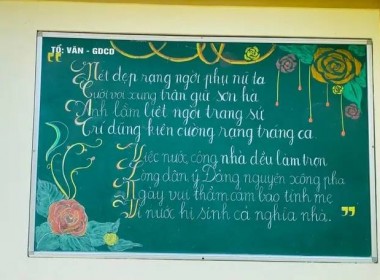 TỔ: VĂN - GDCD
Nét đẹp rạng ngời phụ nữ ta
Cưỡi voi xung trận giữ sơn hà
Anh lâm liệt ngời trang sử
Trí dũng kiên cường rạng tráng ca
Việc nước, công nhà đều làm trọn
Lòng dân ý Đảng nguyện xông pha
Ngày vui thắm cảm bao tình mẹ
Vì nước hi sinh cả nghĩa nhà.